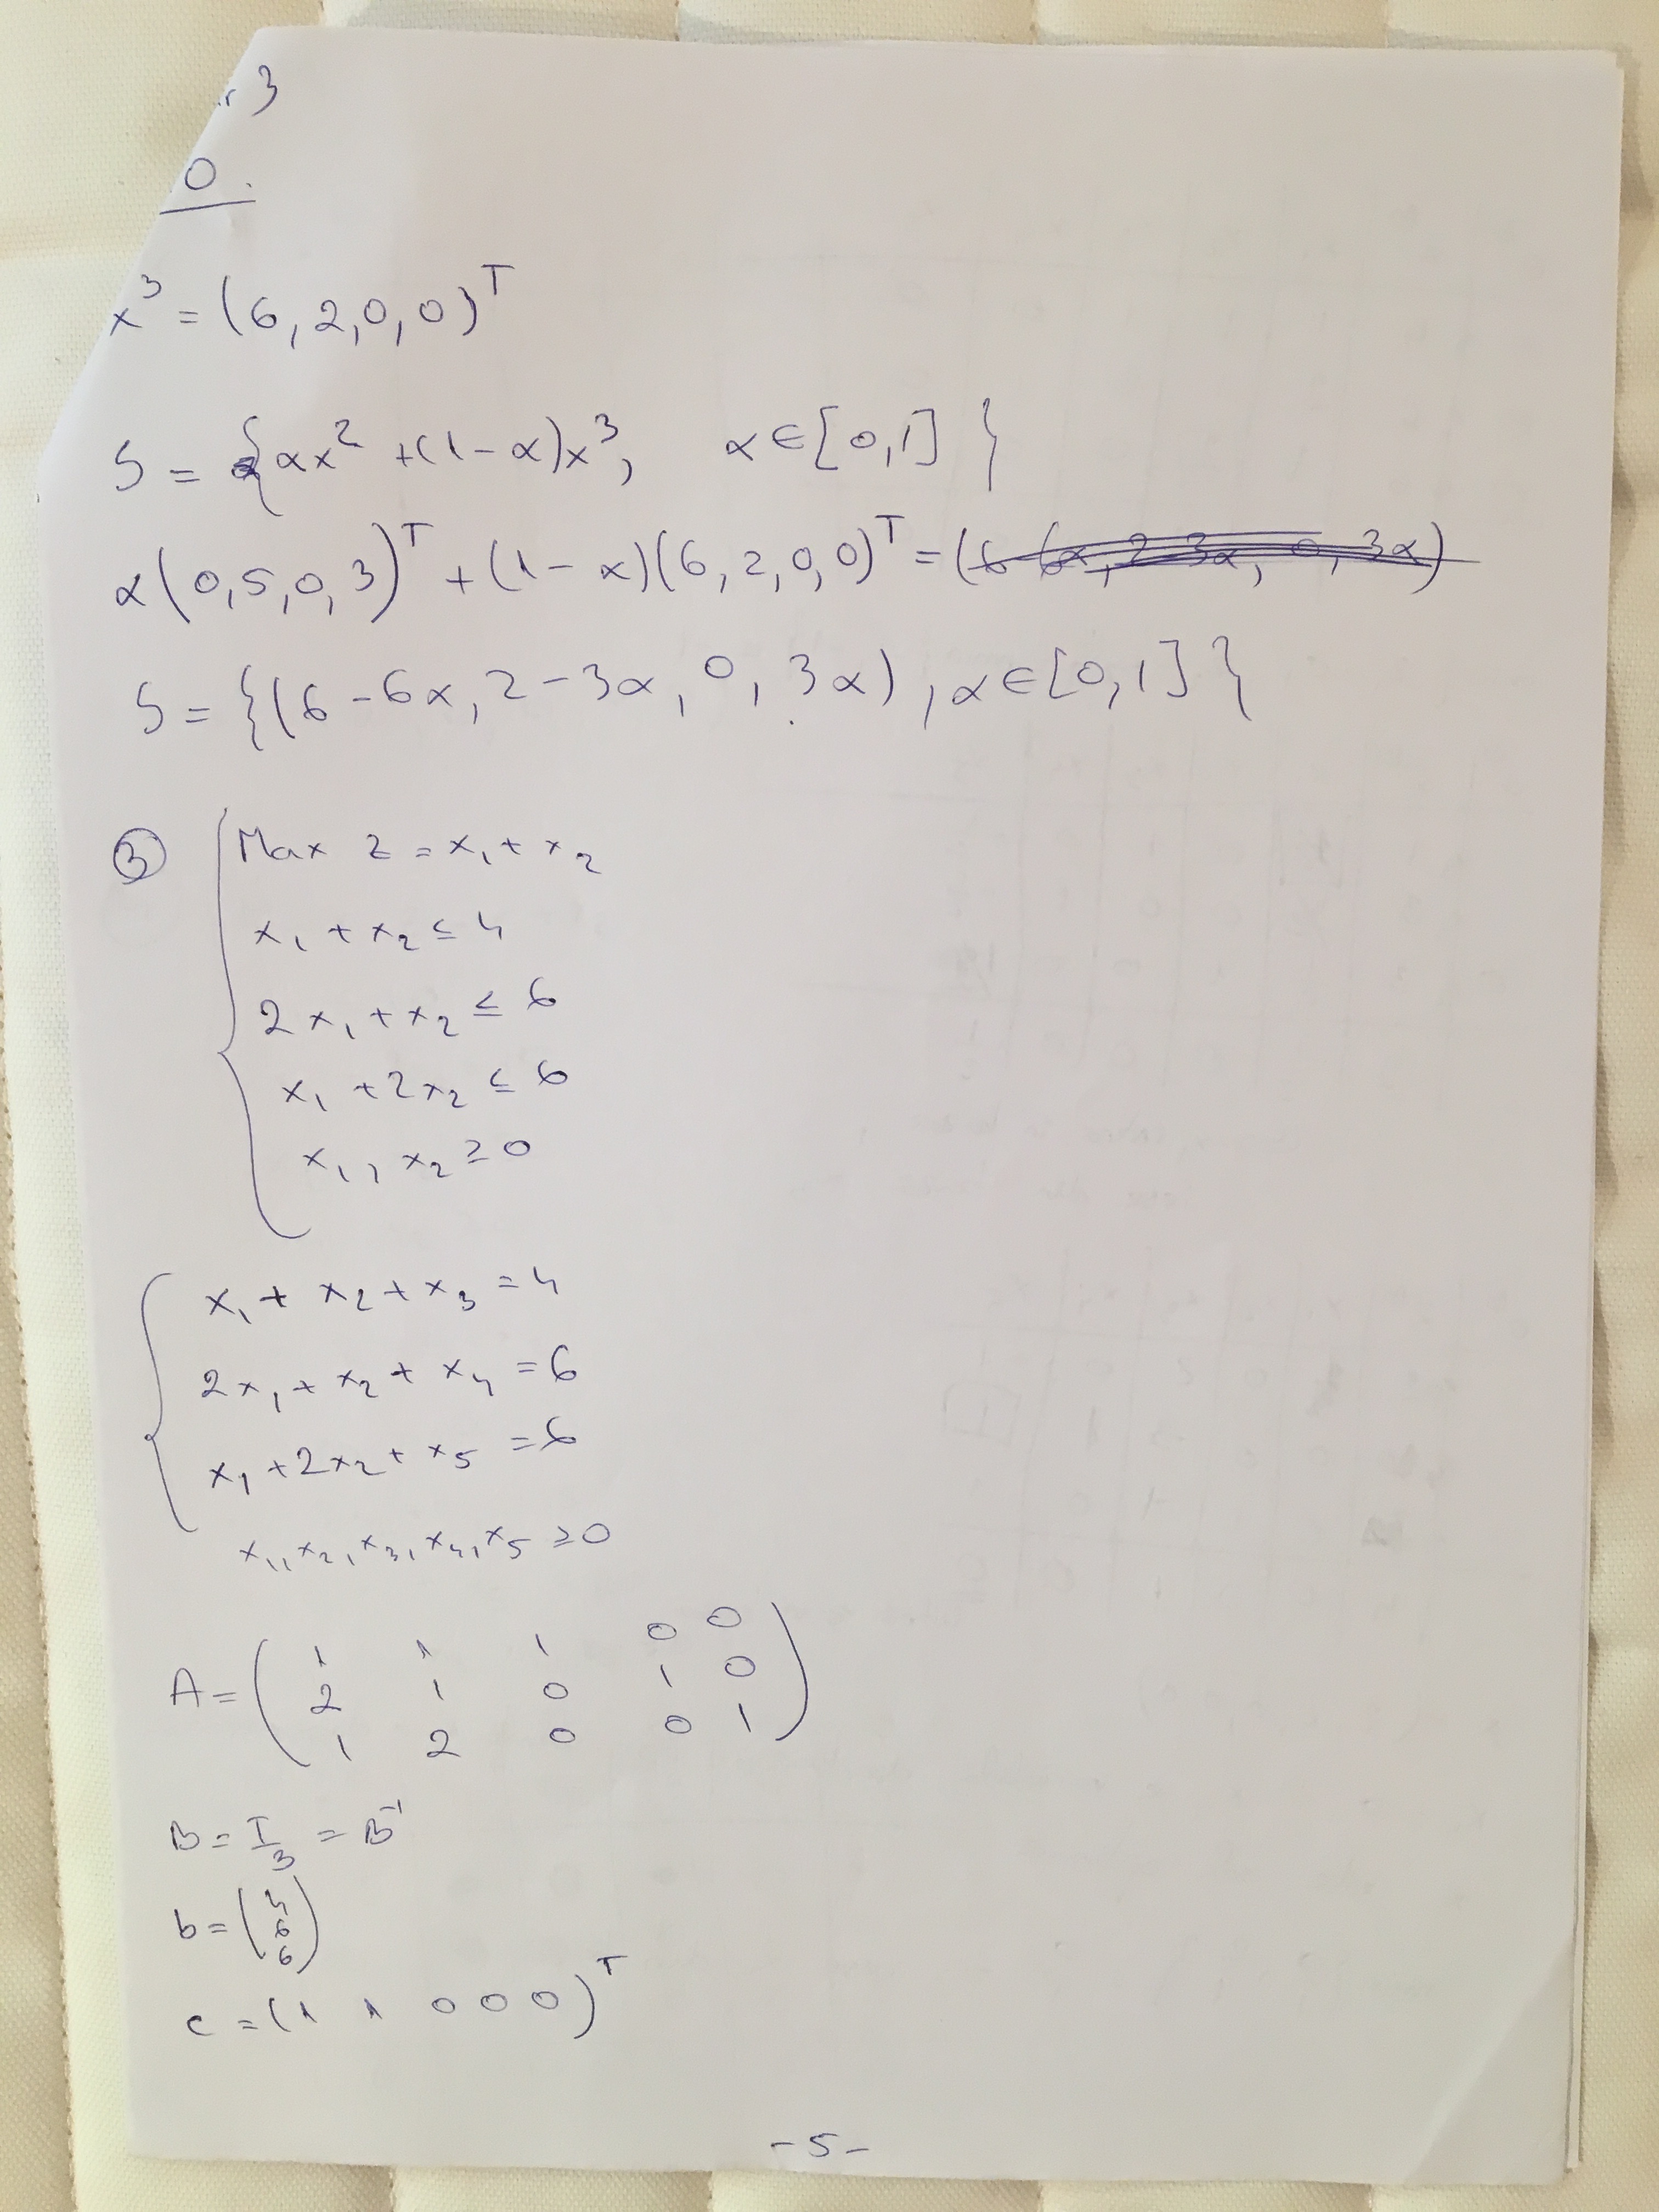 3
0.
x³ = (6, 2, 0, 0)ᵀ
S = {αx² + (1 - α)x³, α ∈ [0, 1] }
α(0, 5, 0, 3)ᵀ + (1 - α)(6, 2, 0, 0)ᵀ = (6 6α, 2 3α, 0, 3α)
S = {(6 - 6α, 2 - 3α, 0, 3α), α ∈ [0, 1] }
③ Max z = x₁ + x₂
x₁ + x₂ ≤ 4
2x₁ + x₂ ≤ 6
x₁ + 2x₂ ≤ 6
x₁, x₂ ≥ 0
x₁ + x₂ + x₃ = 4
2x₁ + x₂ + x₄ = 6
x₁ + 2x₂ + x₅ = 6
x₁, x₂, x₃, x₄, x₅ ≥ 0
A = ( 1 1 1 0 0
2 1 0 1 0
1 2 0 0 1 )
B = I₃ = B⁻¹
b = ( 4
6
6 )
c = (1 1 0 0 0)ᵀ
- 5 -